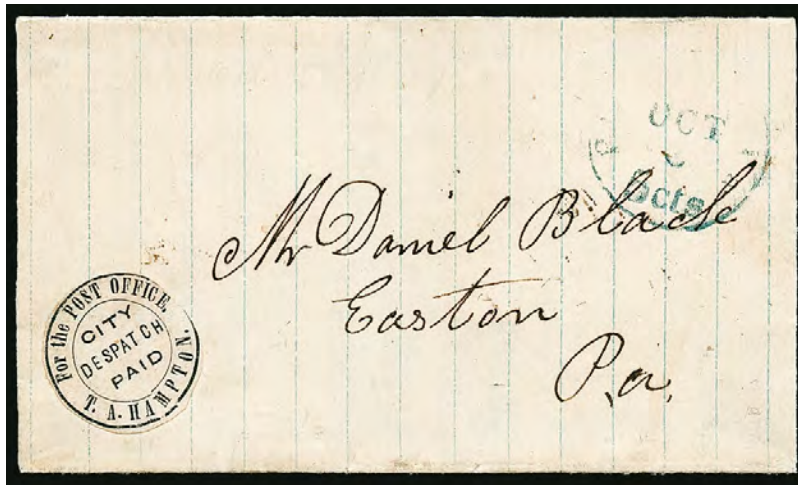 OCT
5cts
Mr Daniel Black
Easton
Pa.
For the POST OFFICE,
CITY
DESPATCH
PAID
T. A. HAMPTON.